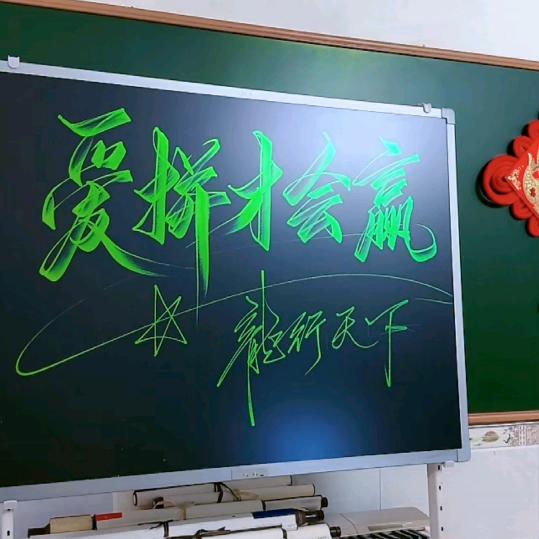 爱拼才会赢
龍行天下